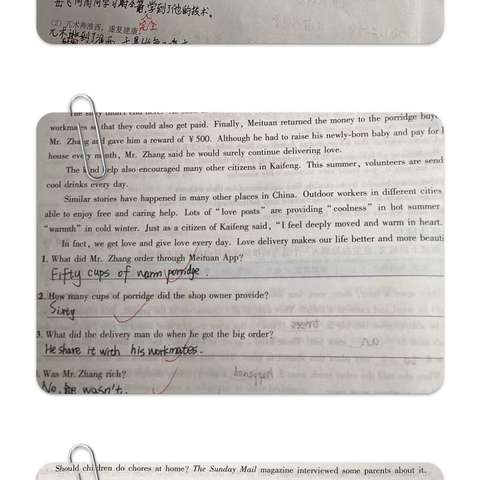 岳飞向周同学习射箭,学到了他的技术。
(2) 兀术奔淮西,遂复建康。
The story didn't end here.
workmates so that they could also get paid. Finally, Meituan returned the money to the porridge buy
Mr. Zhang and gave him a reward of ¥500. Although he had to raise his newly-born baby and pay for
house every month, Mr. Zhang said he would surely continue delivering love.
The kind help also encouraged many other citizens in Kaifeng. This summer, volunteers are send
cool drinks every day.
Similar stories have happened in many other places in China. Outdoor workers in different cities
able to enjoy free and caring help. Lots of "love posts" are providing "coolness" in hot summer
"warmth" in cold winter. Just as a citizen of Kaifeng said, "I feel deeply moved and warm in heart.
In fact, we get love and give love every day. Love delivery makes our life better and more beauti
1. What did Mr. Zhang order through Meituan App?
Fifty cups of warm porridge.
2. How many cups of porridge did the shop owner provide?
Sixty
3. What did the delivery man do when he got the big order?
He share it with his workmates.
. Was Mr. Zhang rich?
No, he wasn't.
Should children do chores at home? The Sunday Mail magazine interviewed some parents about it.